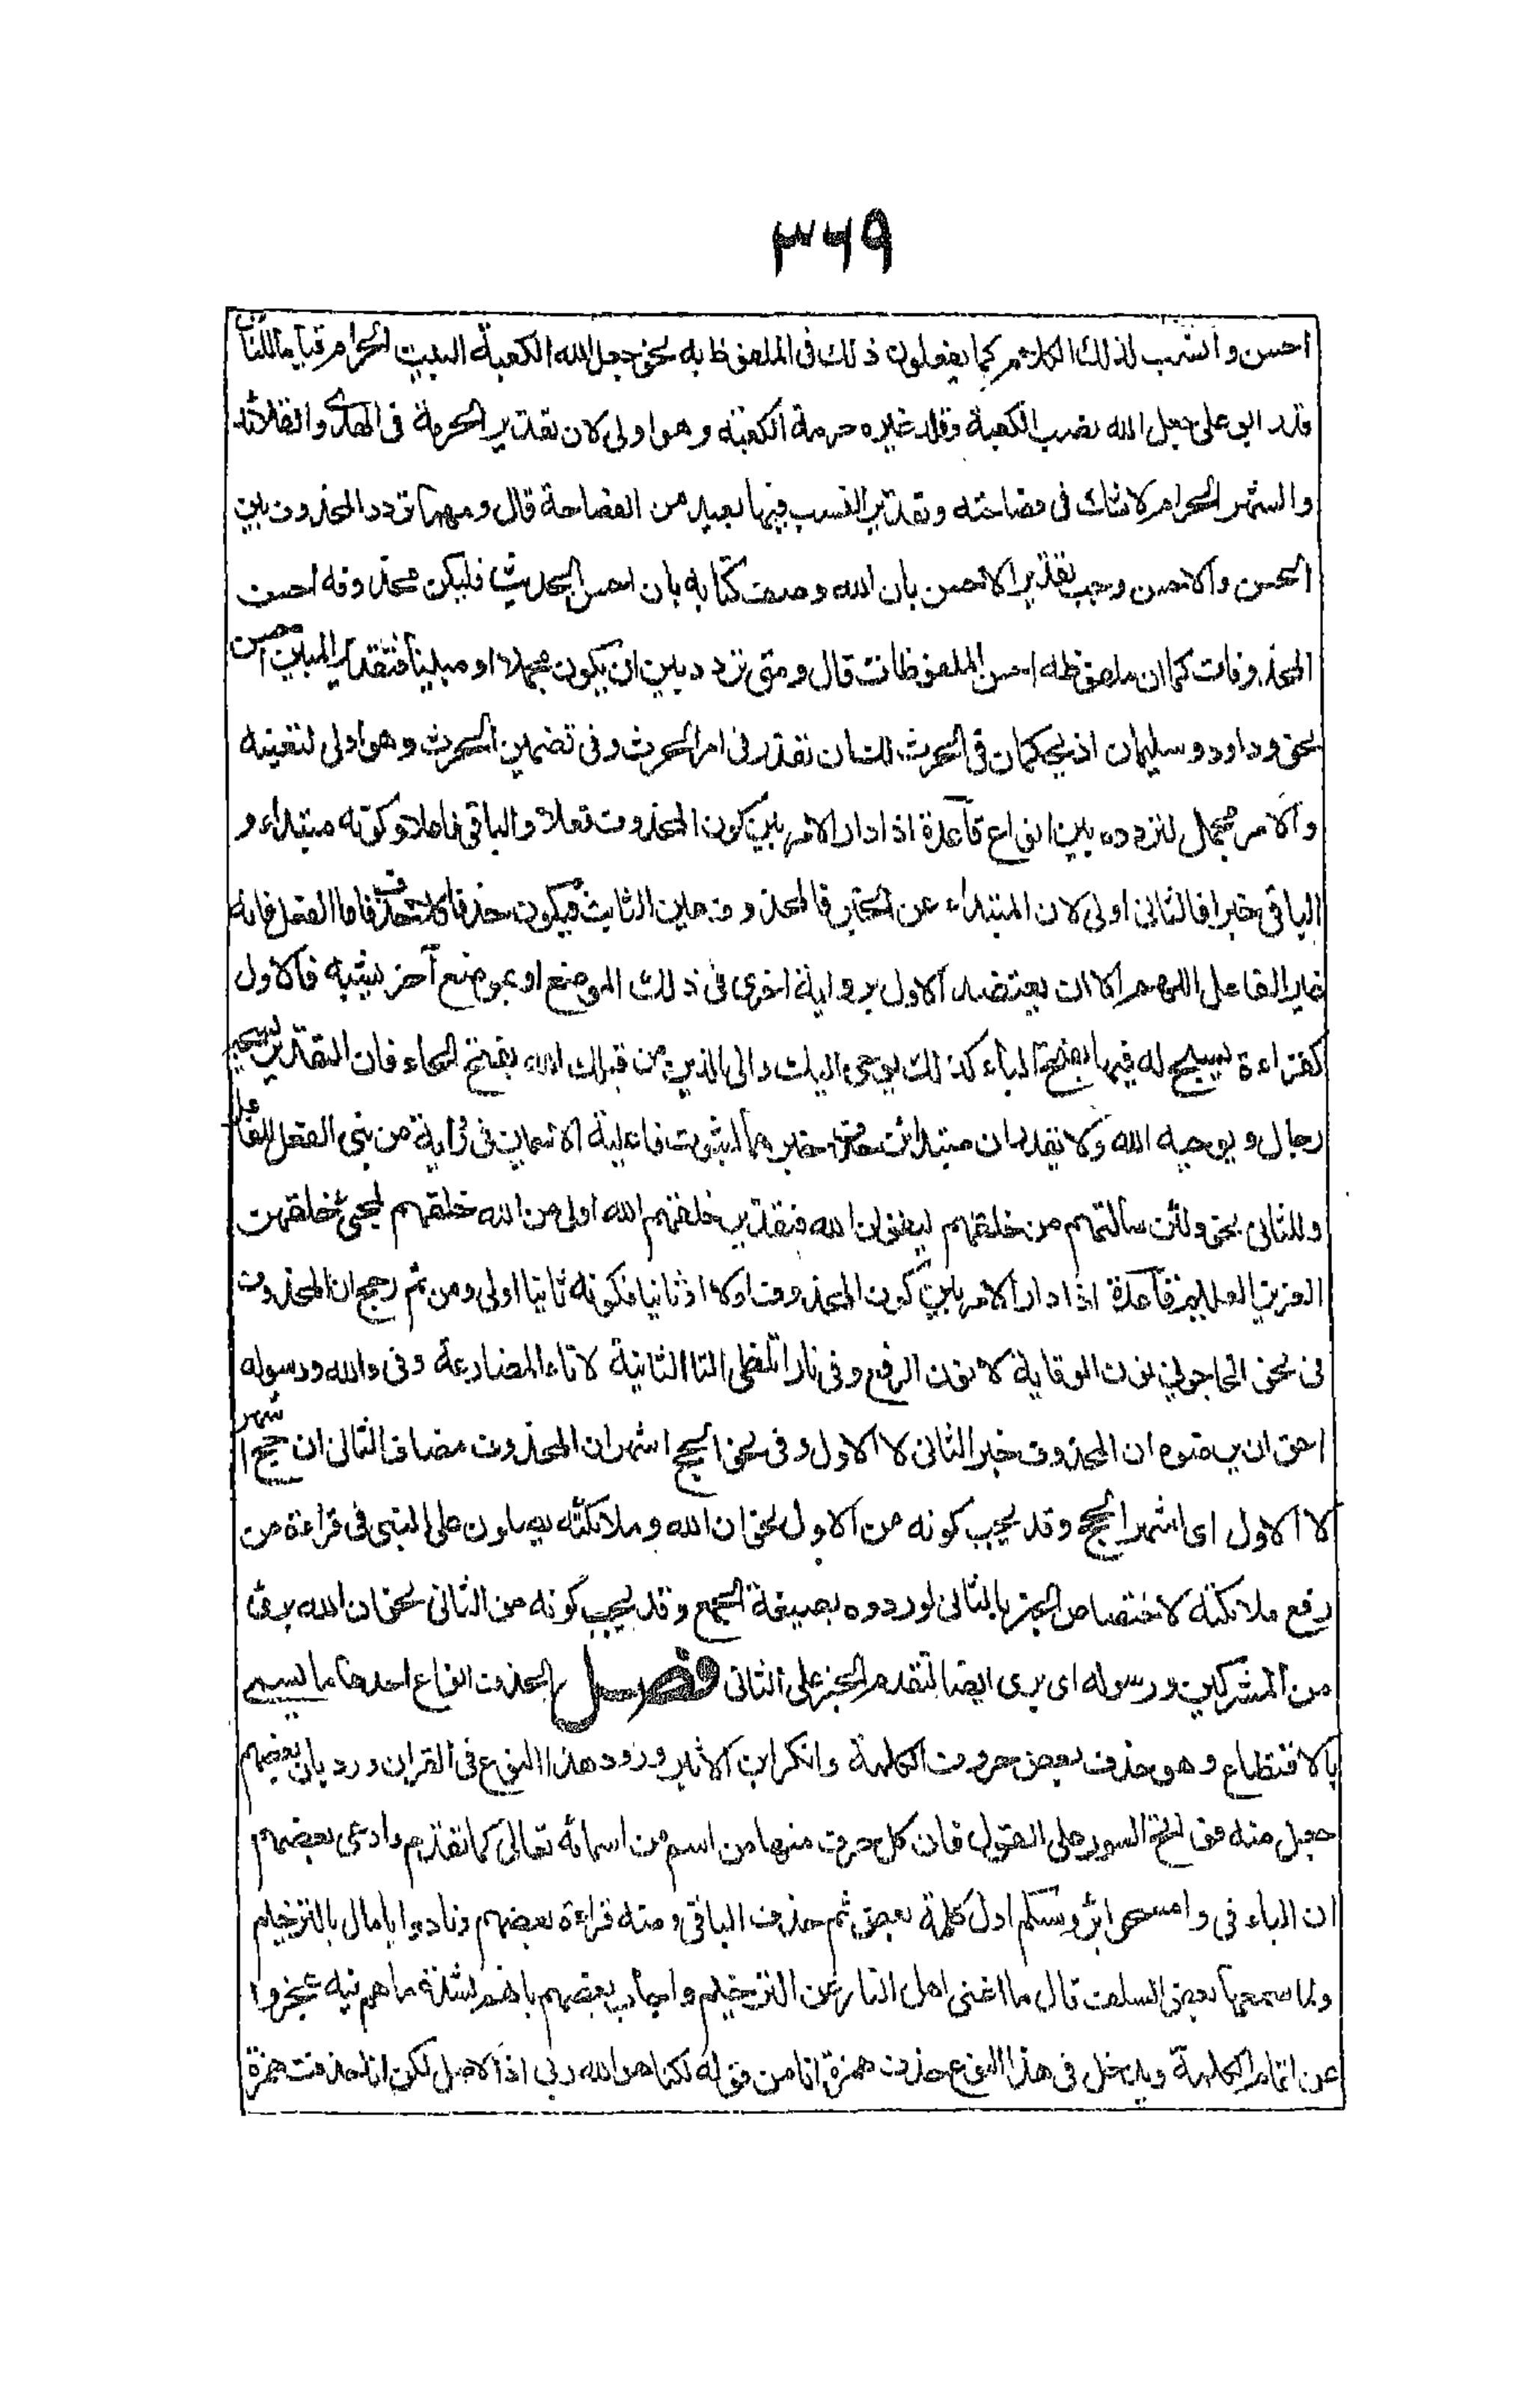 ٣٦٩
احسن وانسب لذلك الكلام كما يفعلون ذلك فى الملفوظ به نحو جعل الله الكعبة البيت الحرام قياما للناس
قدر ابو على جعل الله نصب الكعبة وقدر غيره حرمة الكعبة وهو اولى لان تقدير الحرمة فى الهدى والقلائد
والشهر الحرام لا شك فى فصاحته وتقدير النصب فيها بعيد من الفصاحة قال ومهما تردد المحذوف بين
الحسن والاحسن وجب تقدير الاحسن بان الله وصف كتابه بان احسن الحديث فليكن محذوفه احسن
المحذوفات كما ان ملفوظه احسن الملفوظات قال ومتى تردد بين ان يكون مجملا او مبينا فتقدير المبين احسن
نحو وداود وسليمان اذ يحكمان فى الحرث لك ان تقدر فى امر الحرث وفى تضمين الحرث وهو اولى لتعينه
والامر مجمل لتردده بين انواع قاعدة اذا دار الامر بين كون المحذوف فعلا والباقى فاعلا وكونه مبتداء و
الباقى خبرا فالثانى اولى لان المبتداء عين الخبر فالمحذوف عين الثابت فيكون حذفا كلا حذف فاما الفعل فانه
غير الفاعل اللهم الا ان يعتضد الاول برواية اخرى فى ذلك الموضع او بموضع آخر يشبهه فالاول
كقراءة يسبح له فيها بفتح الباء كذلك يوحى اليك والى الذين من قبلك الله بفتح الحاء فان التقدير يسبحه
رجال و يوحيه الله ولا يقدران مبتدائن حذف خبرهما لثبوت فاعلية الاسمين فى رواية من بنى الفعل للفاعل
وللثانى نحو ولئن سالتهم من خلقهم ليقولن الله فتقدير خلقهم الله اولى من الله خلقهم لمجئ خلقهن
العزيز العليم قاعدة اذا دار الامر بين كون المحذوف اولا او ثانيا فكونه ثانيا اولى ومن ثم رجح ان المحذوف
فى نحو اتحاجونى نون الوقاية لا نون الرفع وفى نارا تلظى التا الثانية لا تاء المضارعة وفى والله ورسوله
احق ان يرضوه ان المحذوف خبر الثانى لا الاول وفى نحو الحج اشهر ان المحذوف مضاف الثانى ان حج اشهر
لا الاول اى اشهر الحج وقد يجب كونه من الاول نحو ان الله وملائكته يصلون على النبى فى قراءة من
رفع ملائكته لاختصاص الخبر بالثانى لوروده بصيغة الجمع وقد يجب كونه من الثانى نحو ان الله برئ
من المشركين ورسوله اى برى ايضا لتقدم الخبر على الثانى فصل الحذف انواع احدها ما يسمى
بالاقتطاع وهو حذف بعض حروف الكلمة وانكر ابن الاثير ورود هذا النوع فى القران ورد بان بعضهم
جعل منه فواتح السور على القول فان كل حرف منها من اسم من اسمائه تعالى كما تقدم وادعى بعضهم
ان الباء فى وامسحوا برؤسكم اول كلمة بعض ثم حذف الباقى ومنه قراءة بعضهم ونادوا يا مال بالترخيم
ولما سمعها بعض السلف قال ما اغنى اهل النار عن الترخيم واجاب بعضهم بانهم لشدة ما هم فيه عجزوا
عن اتمام الكلمة ويدخل فى هذا النوع حذف همزة انا من قوله لكنا هو الله ربى اذ الاصل لكن انا حذفت همزة